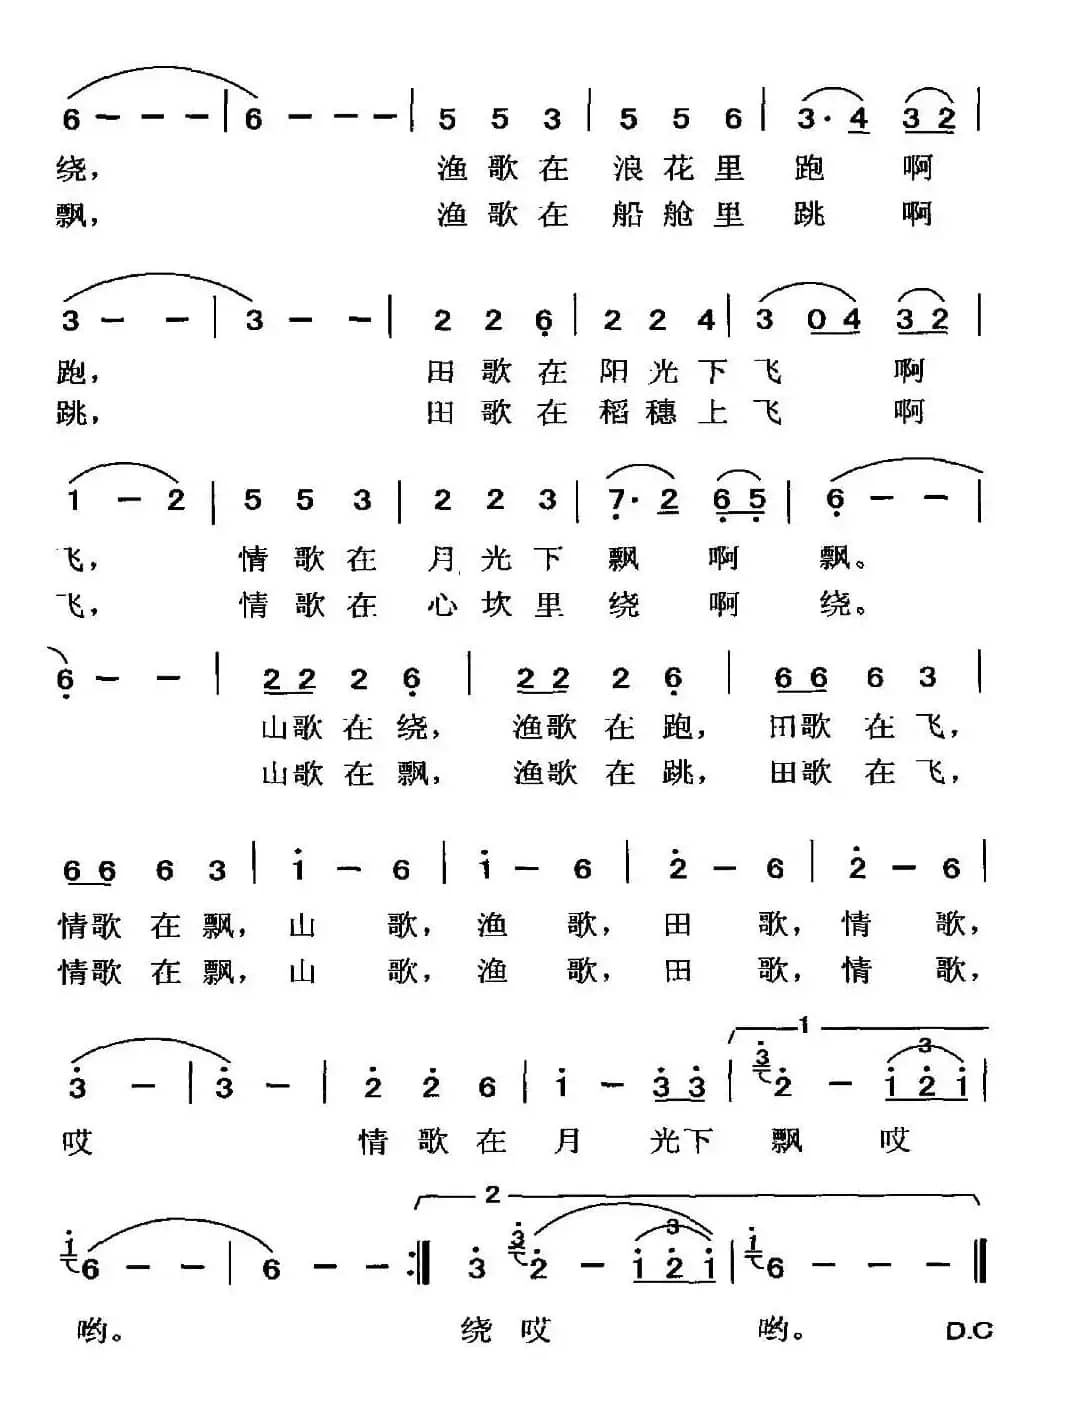 6 - - - | 6 - - - | 5 5 3 | 5 5 6 | 3· 4 3 2 |
绕， 渔歌在 浪花里 跑 啊
飘， 渔歌在 船舱里 跳 啊
3 - - | 3 - - | 2 2 6 | 2 2 4 | 3 0 4 3 2 |
跑， 田歌在 阳光下 飞 啊
跳， 田歌在 稻穗上 飞 啊
1 - 2 | 5 5 3 | 2 2 3 | 7· 2 6 5 | 6 - - |
飞， 情歌在 月光下 飘 啊 飘。
飞， 情歌在 心坎里 绕 啊 绕。
6 - - | 2 2 2 6 | 2 2 2 6 | 6 6 6 3 |
山歌在绕， 渔歌在跑， 田歌在飞，
山歌在飘， 渔歌在跳， 田歌在飞，
6 6 6 3 | 1 - 6 | 1 - 6 | 2 - 6 | 2 - 6 |
情歌在飘， 山 歌， 渔 歌， 田 歌， 情 歌，
情歌在飘， 山 歌， 渔 歌， 田 歌， 情 歌，
1
3 - | 3 - | 2 2 6 | 1 - 3 3 | 3 2 - 3 1 2 1 |
哎 情歌在 月 光下 飘 哎
2
1 6 - - | 6 - - :|| 3 3 2 - 3 1 2 1 | 1 6 - - - ||
哟。 绕 哎 哟。 D.C